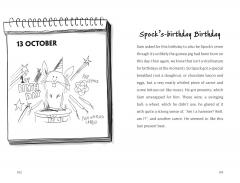 13 OCTOBER
Spock's-birthday Birthday
Sam asked for this birthday to also be Spock's (even
though it's unlikely the guinea pig had been born on
this day. But then again, we know that isn't a
for birthdays at the moment). So Spock got a special
breakfast (not a doughnut, or chocolate bacon and
eggs, but a very neatly whittled piece of carrot and
some lettuce cut like roses). He got presents, which
Sam unwrapped for him. These were a swinging
ball, a wheel, which he didn't use, he glared at it
with quite a strong sense of 'Am I a hamster? Well,
am I?', and another carrot. He seemed to like this
last present best.